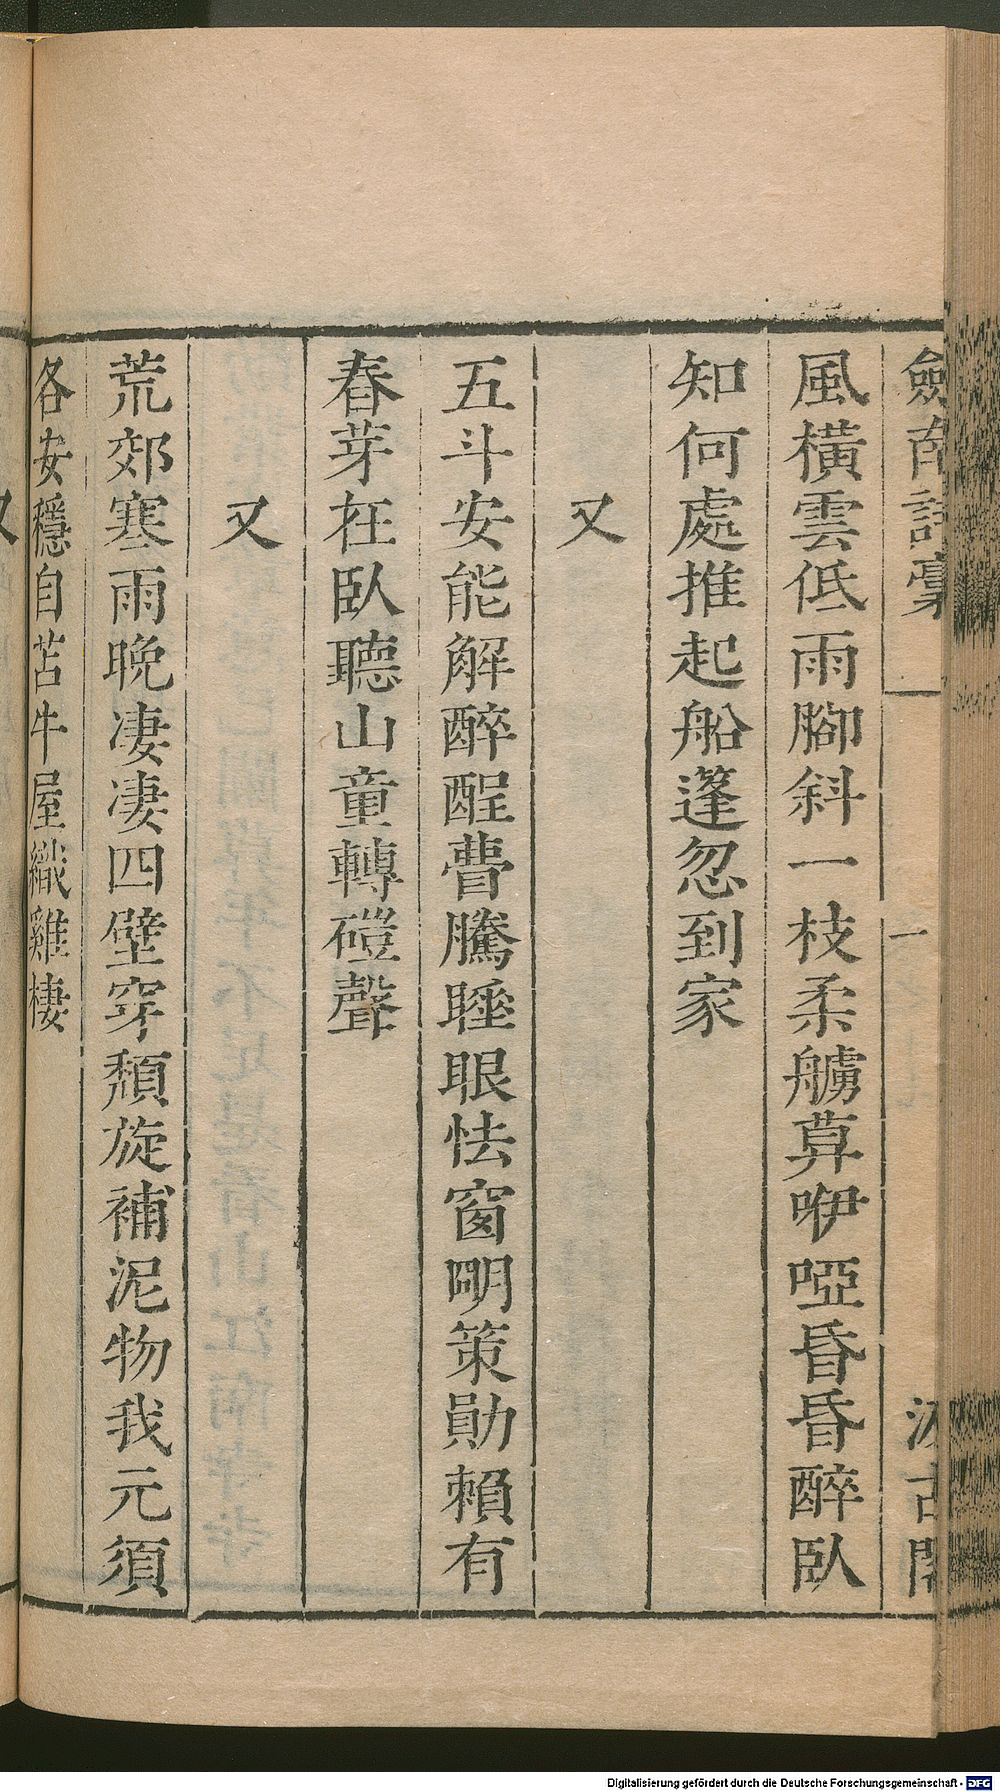 劍南詩稾 一 汲古閣
風橫雲低雨腳斜一枝柔艣算咿啞昏昏醉臥
知何處推起船篷忽到家
又
五斗安能解醉酲瞢騰睡眼怯窗明策勛賴有
春芽在臥聽山童轉磑聲
又
荒郊寒雨晚凄凄四壁穿頹旋補泥物我元須
各安穩自苫牛屋織雞棲
又
Digitalisierung gefördert durch die Deutsche Forschungsgemeinschaft - DFG